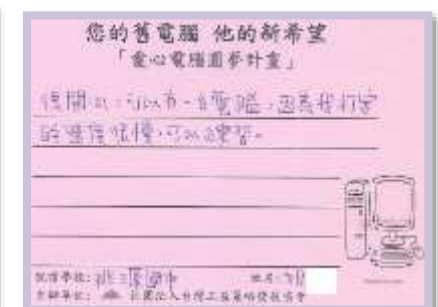 您的舊電腦 他的新希望
「愛心電腦圓夢計畫」
很開心,可以有一台電腦,因為我打字
的速度很慢,可以練習。
就讀學校:桃源國中 姓名:
主辦單位: 社團法人台灣工業策略發展協會